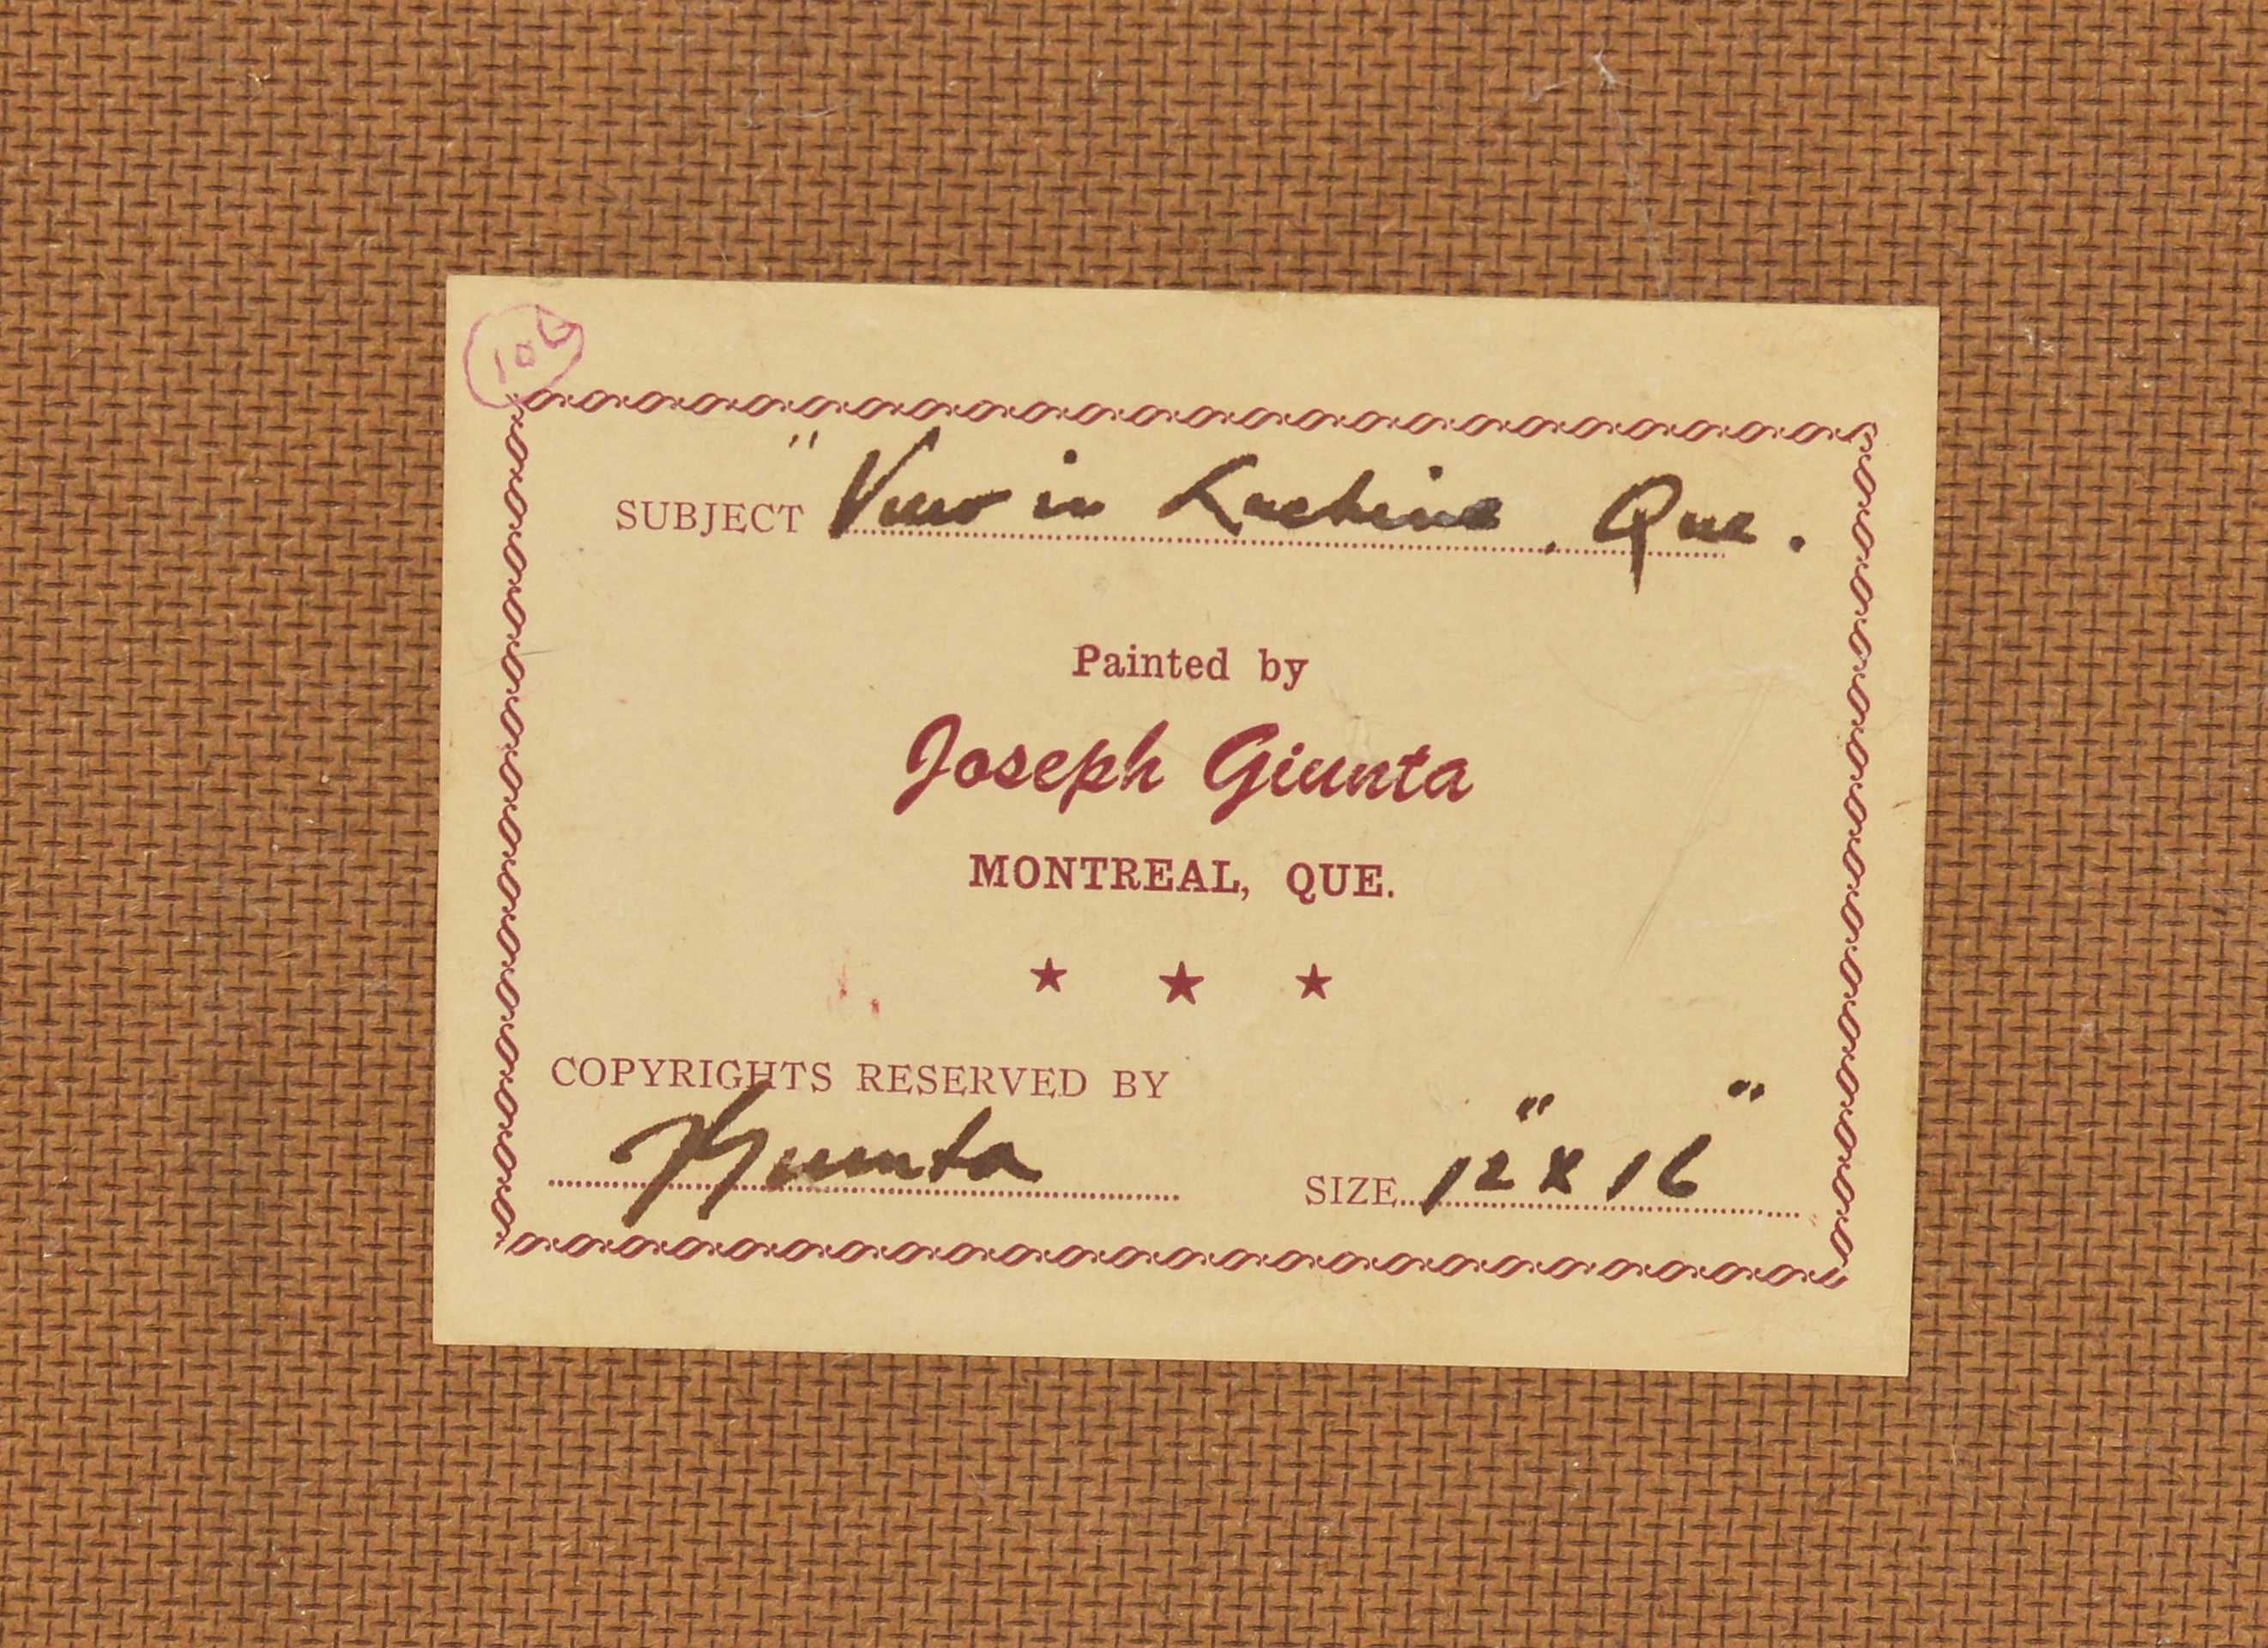 SUBJECT " View in Lachine, Que.
Painted by
Joseph Giunta
MONTREAL, QUE.
★ ★ ★
COPYRIGHTS RESERVED BY
Giunta
SIZE 12" x 16"